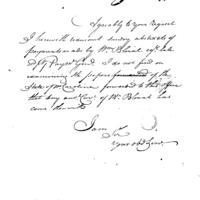 Agreeably to your request
I herewith transmit sundry abstracts of
payments made by Wm Blount esqr. late
Dy. Pay Mr. Genl. I do not find on
examining the papers forwarded of the
State of No Carolina forwarded to this office
that any
of Mr. Blount has
come forward
I am
Sir
Your obd Serv.